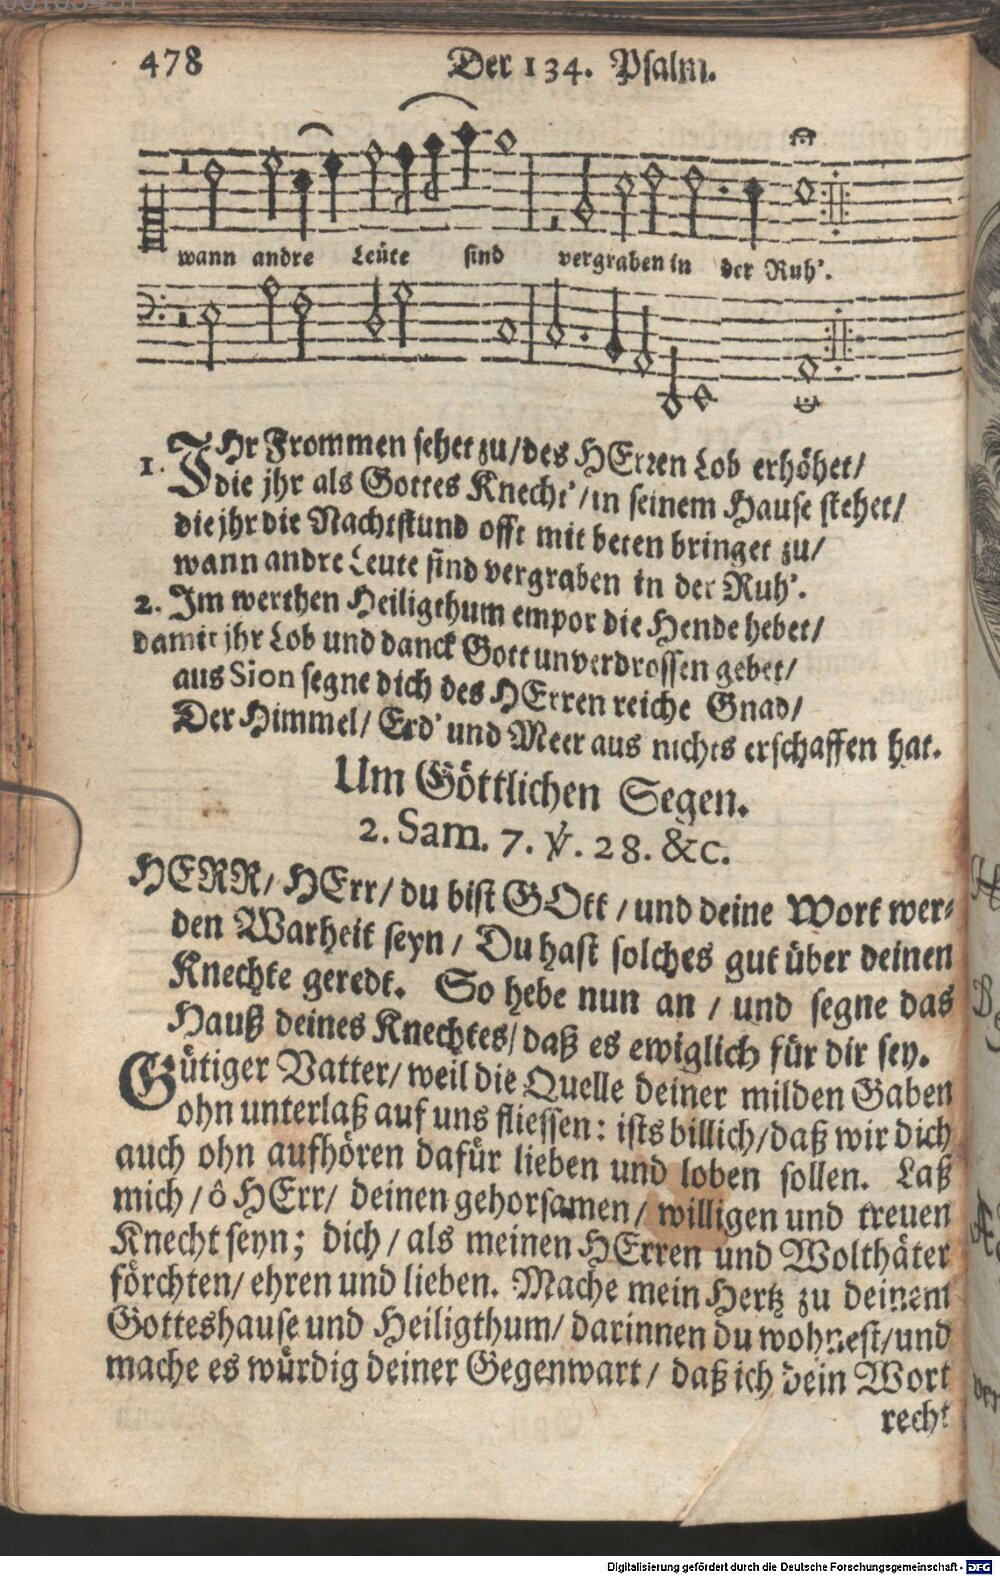 478
Der 134. Psalm.
wann andre Leüte sind vergraben in der Ruh'.
1. IHr Frommen sehet zu/des HErren Lob erhöhet/
die jhr als Gottes Knecht'/in seinem Hause stehet/
die jhr die Nachtstund offt mit beten bringet zu/
wann andre Leute sind vergraben in der Ruh'.
2. Im werthen Heiligthum empor die Hende hebet/
damit jhr Lob und danck Gott unverdrossen gebet/
aus Sion segne dich des HErren reiche Gnad/
Der Himmel/ Erd' und Meer aus nichts erschaffen hat.
Um Göttlichen Segen.
2. Sam. 7. ℣. 28. &c.
HERR/ HErr/ du bist GOtt / und deine Wort wer-
den Warheit seyn / Du hast solches gut über deinen
Knechte geredt. So hebe nun an / und segne das
Hauß deines Knechtes/ daß es ewiglich für dir sey.
Gütiger Vatter/ weil die Quelle deiner milden Gaben
ohn unterlaß auf uns fliessen: ists billich/daß wir dich
auch ohn aufhören dafür lieben und loben sollen. Laß
mich / ô HErr/ deinen gehorsamen/ willigen und treuen
Knecht seyn; dich / als meinen HErren und Wolthäter
förchten/ ehren und lieben. Mache mein Hertz zu deinem
Gotteshause und Heiligthum/ darinnen du wohnest/und
mache es würdig deiner Gegenwart / daß ich dein Wort
recht
Digitalisierung gefördert durch die Deutsche Forschungsgemeinschaft - DFG